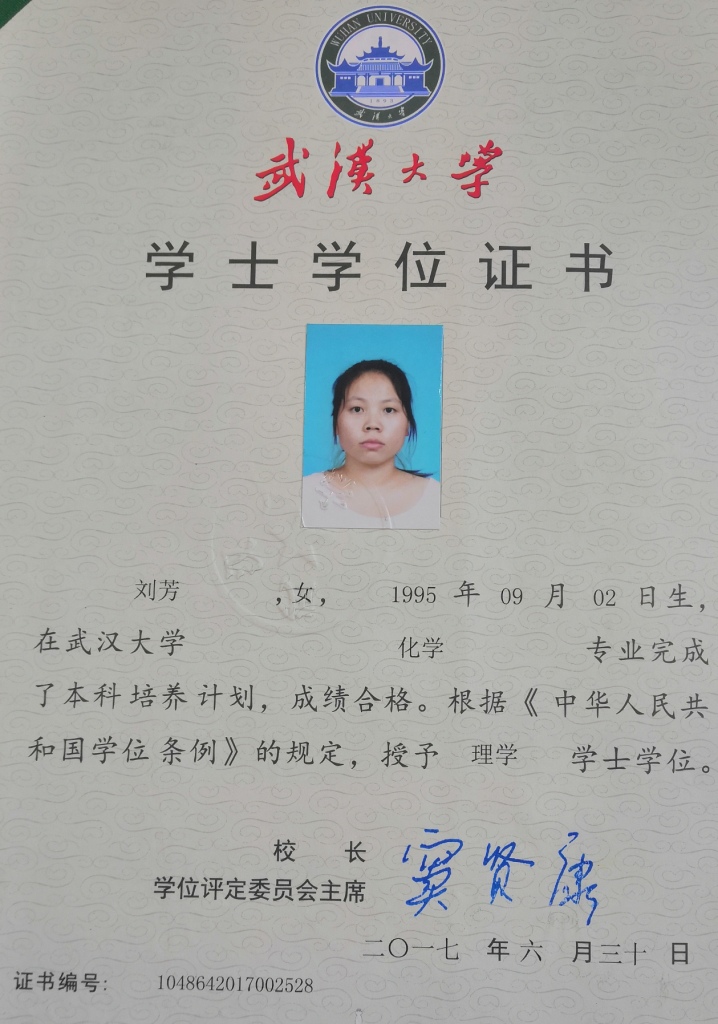 WUHAN UNIVERSITY
1893
武漢大學
武漢大學
学士学位证书
刘芳，女，1995年09月02日生，
在武汉大学 化学 专业完成
了本科培养计划，成绩合格。根据《中华人民共
和国学位条例》的规定，授予 理学 学士学位。
校 长
学位评定委员会主席
窦贤康
二〇一七年六月三十日
证书编号：1048642017002528